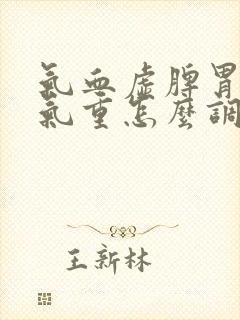 氣血虛脾胃
氣重怎麼調
王新林